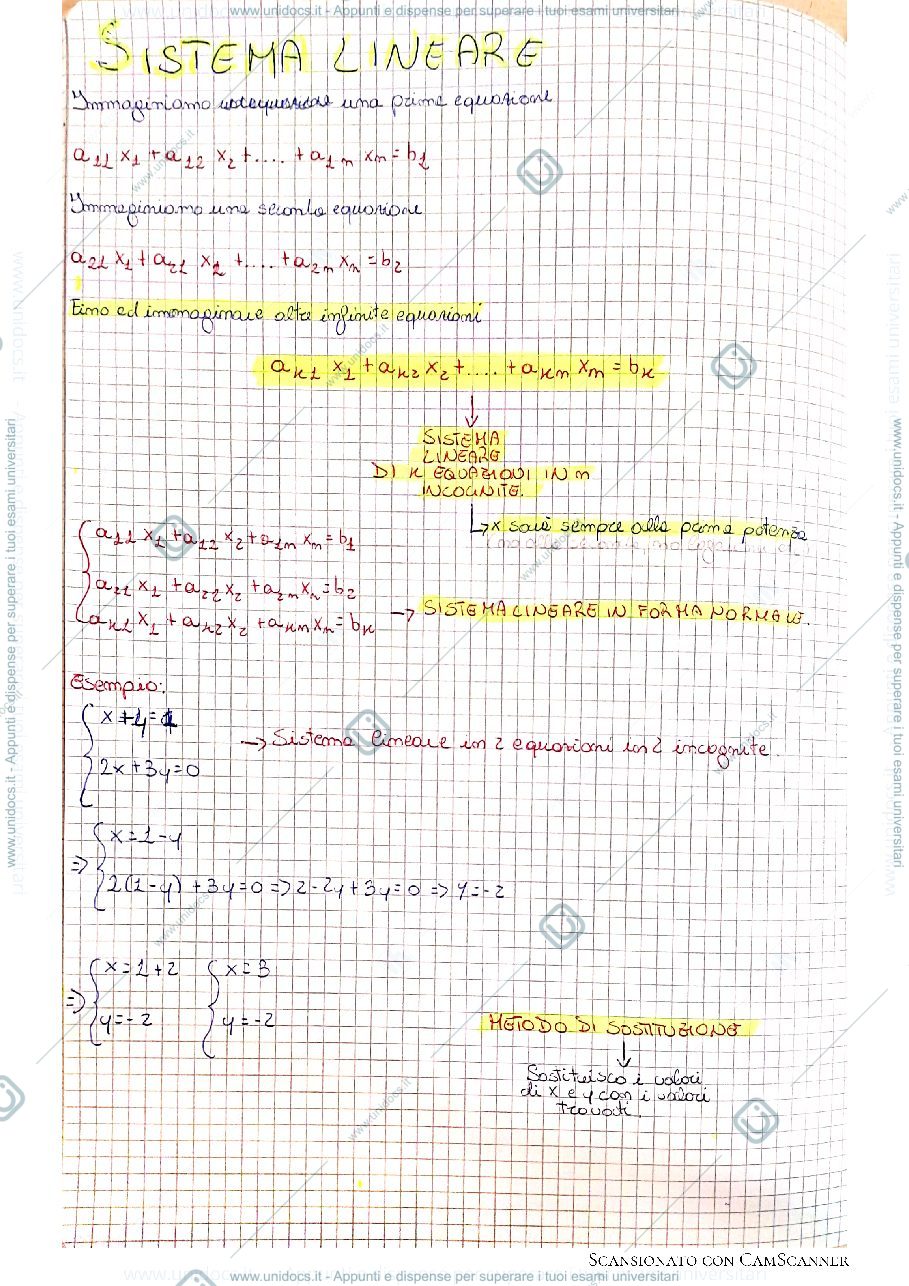 www.unidocs.it - Appunti e dispense per superare i tuoi esami universitari
SISTEMA LINEARE
Immaginiamo una prima equazione
a11 x1 + a12 x2 + .... + a1m xm = b1
Immaginiamo una seconda equazione
a21 x1 + a21 x2 + .... + a2m xn = b2
Fino ed immaginare altre infinite equazioni
aK1 x1 + aK2 x2 + .... + aKm xm = bK
SISTEMA
LINEARE
DI K EQUAZIONI IN m
INCOGNITE.
↳ x sarà sempre alla prima potenza
a11 x1 + a12 x2 + a1m xm = b1
a21 x1 + a22 x2 + a2m xn = b2
aK1 x1 + aK2 x2 + aKm xm = bK → SISTEMA LINEARE IN FORMA NORMALE.
Esempio:
x + y = 1
→ Sistema lineare in 2 equazioni in 2 incognite.
2x + 3y = 0
x = 1 - y
⇒ 2(1 - y) + 3y = 0 ⇒ 2 - 2y + 3y = 0 ⇒ y = -2
x = 1 + 2 x = 3
⇒ y = -2 y = -2
METODO DI SOSTITUZIONE
Sostituisco i valori
di x e y con i valori
trovati.
SCANSIONATO CON CAMSCANNER
www.unidocs.it - Appunti e dispense per superare i tuoi esami universitari